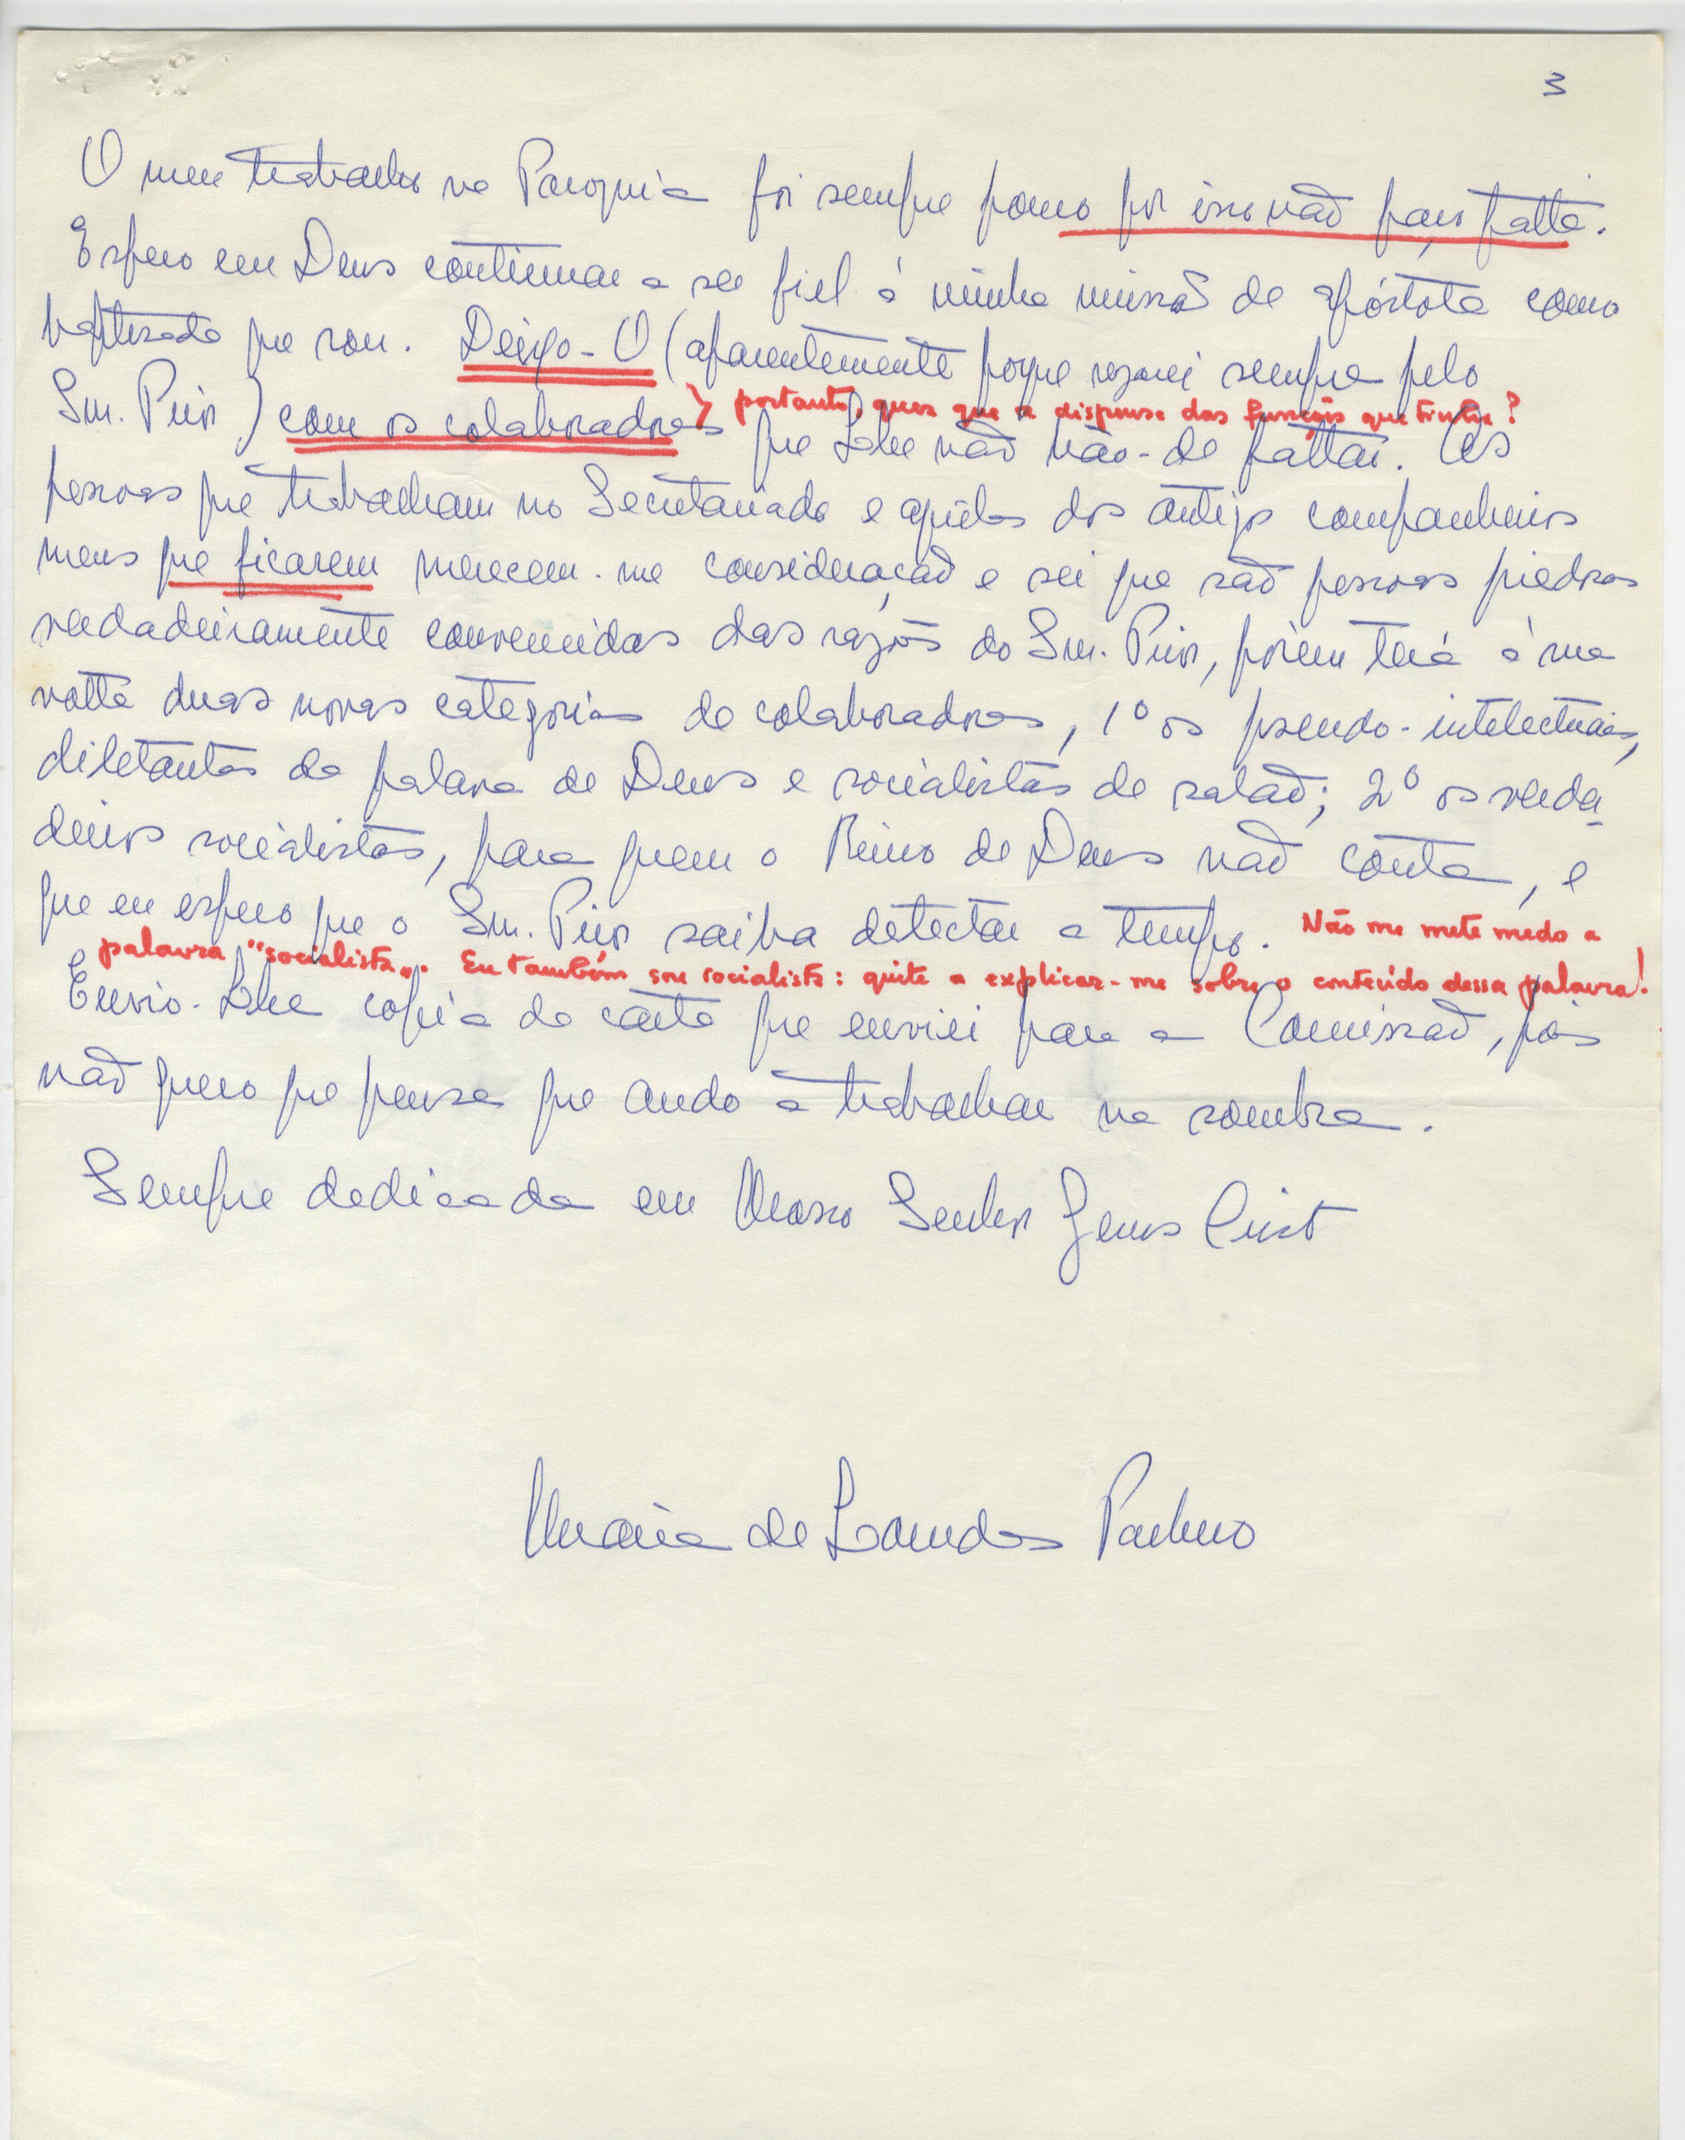 3
O meu trabalho na Paroquia foi sempre pouco por isso não faço falta.
Espero em Deus continuar a ser fiel á minha missão de apóstola como
baptisada que sou. Deixo-O (aparentemente porque rezarei sempre pelo
Snr. Prior) com os colaboradores que Lhe não hão-de faltar. As
portanto, quer que a dispense das funções que tinha?
pessoas que trabalham no Secretariado e aquelas dos antigos companheiros
meus que ficarem merecem-me consideração e sei que são pessoas piedosas
verdadeiramente convencidas das razões do Snr. Prior, porém terá á sua
volta duas novas categorias de colaboradores, 1º os pseudo-intelectuais,
diletantes da palavra de Deus e socialistas de salão; 2º os verda-
deiros socialistas, para quem o Reino de Deus não conta, e
que eu espero que o Snr. Prior saiba detectar a tempo. Não me mete medo a
palavra "socialista". Eu também sou socialista: quite a explicar-me sobre o contevido dessa palavra!
Envio-Lhe copia da carta que enviei para a Comissão, pois
não quero que pense que ando a trabalhar na sombra.
Sempre dedicada em Nosso Senhor Jesus Cristo
Maria de Lourdes Pacheco